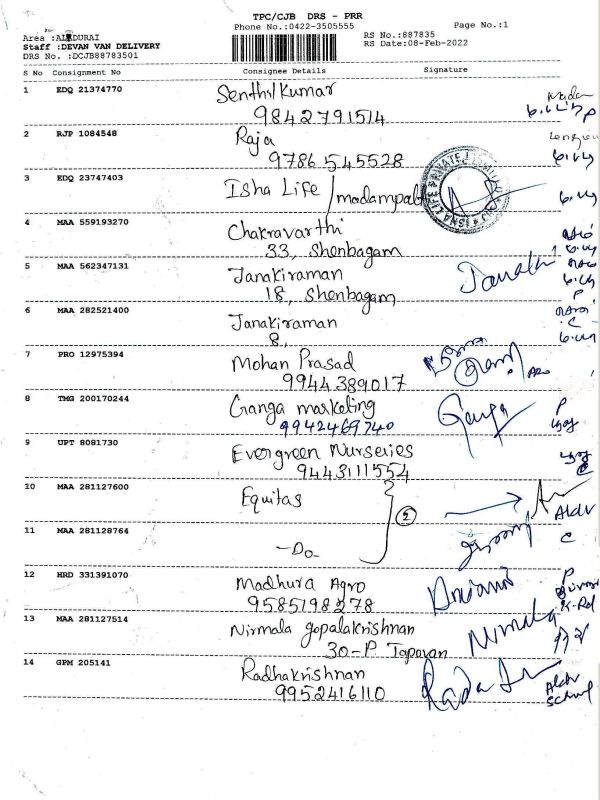 TPC/CJB DRS - PRR
Phone No.:0422-3505555
Page No.:1
Area :ALNDURAI
RS No.:887835
Staff :DEVAN VAN DELIVERY
RS Date:08-Feb-2022
DRS No. :DCJB88783501
S No Consignment No Consignee Details Signature
1 EDQ 21374770 Senthilkumar
9842791514
2 RJP 1084548 Raja
9786545528
3 EDQ 23747403 Isha Life / madampatti
4 MAA 559193270 Chakravarthi
33, Shenbagam
5 MAA 562347131 Janakiraman
18, Shenbagam
6 MAA 282521400 Janakiraman
8,
7 PRO 12975394 Mohan Prasad
9944389017
8 TMG 200170244 Ganga marketing Ganga P
9942469740
9 UPT 8081730 Evergreen Nurseries
9443111554 C
10 MAA 281127600 Equitas
2
Aldr
11 MAA 281128764 C
-Do-
12 HRD 331391070 Madhura Agro P
9585198278
13 MAA 281127514 Nirmala gopalakrishnan Nirmala
30-P Tapovan
14 GPM 205141 Radhakrishnan
9952416110 Aldr
School